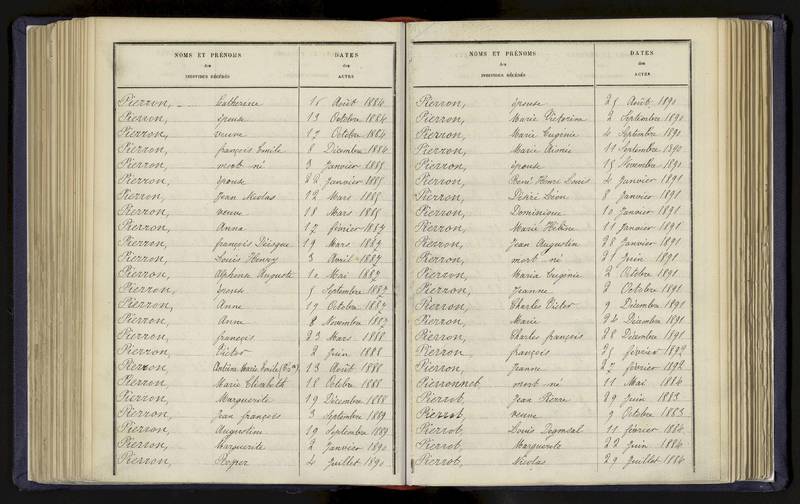 NOMS ET PRÉNOMS
des
INDIVIDUS DÉCÉDÉS
DATES
des
ACTES
Pierron, Catherine 15 Août 1884
Pierron, épouse 13 Octobre 1884
Pierron, veuve 17 Octobre 1884
Pierron, françois Emile 8 Décembre 1884
Pierron, mort né 3 Janvier 1885
Pierron, épouse 22 Janvier 1885
Pierron, Jean Nicolas 12 Mars 1885
Pierron, veuve 18 Mars 1885
Pierron, Anna 17 février 1887
Pierron, françois 19 Mars 1887
Pierron, Louis Henry 3 Avril 1887
Pierron, Alphonse Auguste 10 Mai 1887
Pierron, épouse 5 Septembre 1887
Pierron, Anne 17 Octobre 1887
Pierron, Anne 8 Novembre 1887
Pierron, françois 23 Mars 1888
Pierron, Victor 2 Juin 1888
Pierron, Marie Emile 13 Août 1888
Pierron, Marie Elisabeth 18 Octobre 1888
Pierron, Marguerite 19 Décembre 1888
Pierron, Jean françois 3 Septembre 1889
Pierron, Augustine 19 Septembre 1889
Pierron, Marguerite 2 Janvier 1890
Pierron, Roger 4 Juillet 1890
NOMS ET PRÉNOMS
des
INDIVIDUS DÉCÉDÉS
DATES
des
ACTES
Pierron, épouse 25 Août 1890
Pierron, Marie Victorine 2 Septembre 1890
Pierron, Marie Eugénie 4 Septembre 1890
Pierron, Marie 11 Septembre 1890
Pierron, épouse 15 Novembre 1890
Pierron, René Henri Louis 4 Janvier 1891
Pierron, Désiré Léon 8 Janvier 1891
Pierron, Dominique 10 Janvier 1891
Pierron, Marie 11 Janvier 1891
Pierron, Jean Augustin 28 Janvier 1891
Pierron, mort né 21 Juin 1891
Pierron, Maria Eugénie 2 Octobre 1891
Pierron, Jeanne 2 Octobre 1891
Pierron, Charles Victor 9 Décembre 1891
Pierron, Marie 24 Décembre 1891
Pierron, Charles françois 28 Décembre 1891
Pierron, françois 25 février 1892
Pierron, Jeanne 27 février 1892
Pierronnet, mort né 11 Mai 1884
Pierrot, Jean Pierre 29 Juin 1883
Pierrot, veuve 9 Octobre 1883
Pierrot, Louis 11 février 1884
Pierrot, Marguerite 22 Juin 1884
Pierrot, Nicolas 29 Juillet 1884